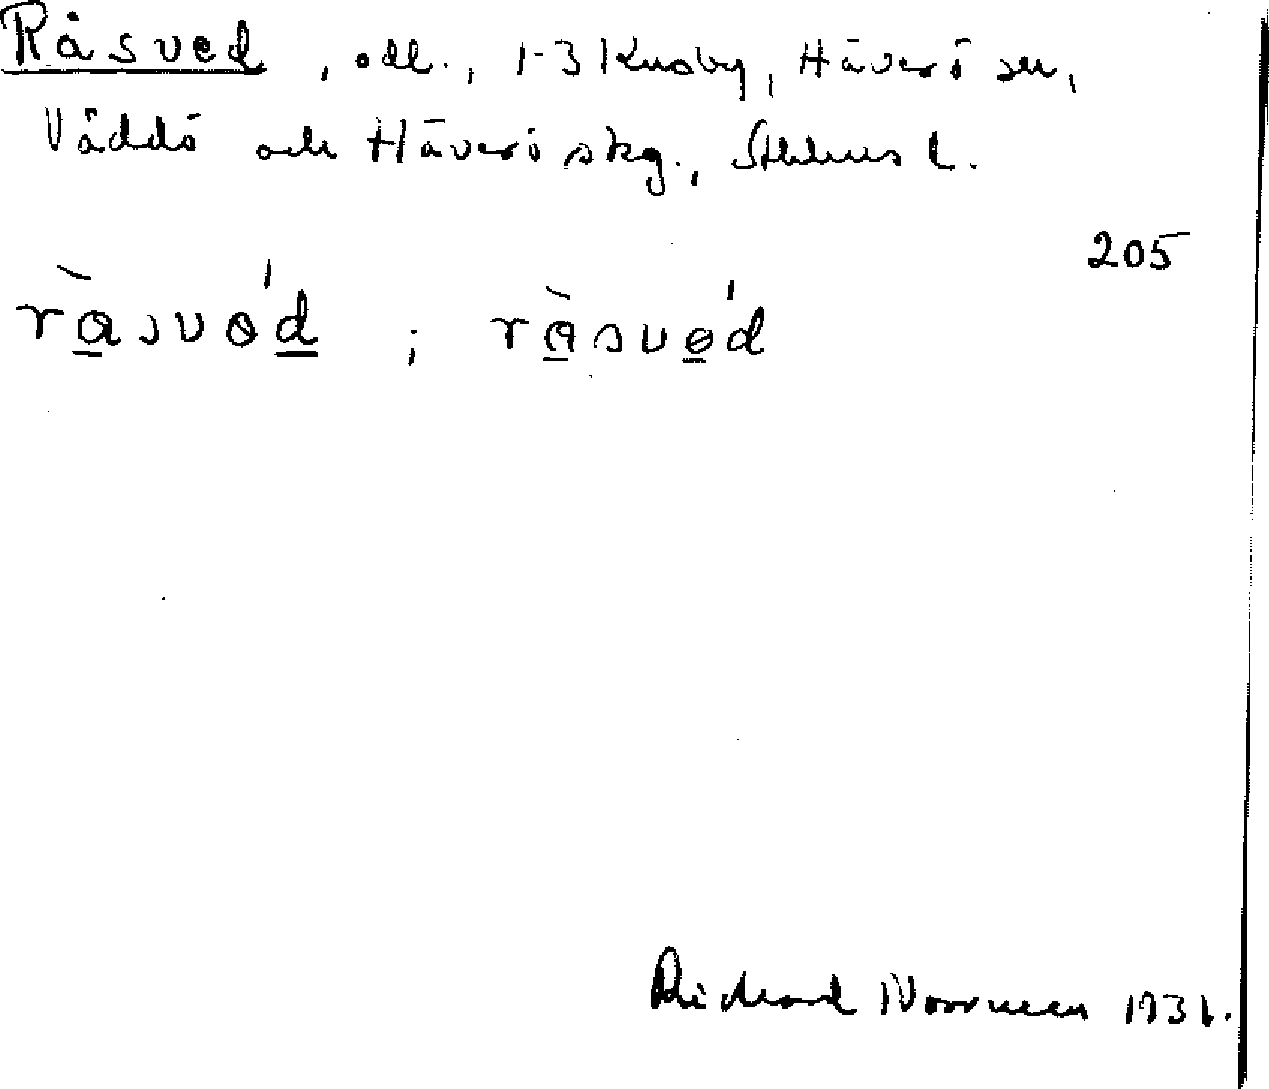 Råsved, odl., 1-3 Knaby, Häverö sn,
Väddö och Häverö skg., Sthlms l.
205
ràsvǝ́d ; ràsvǝ́d
Richard Norrman 1931.